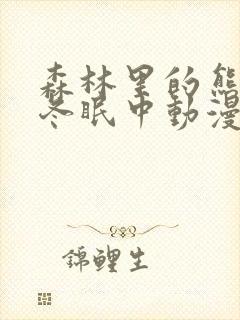 森林里的熊
冬眠中動漫
錦鲤生